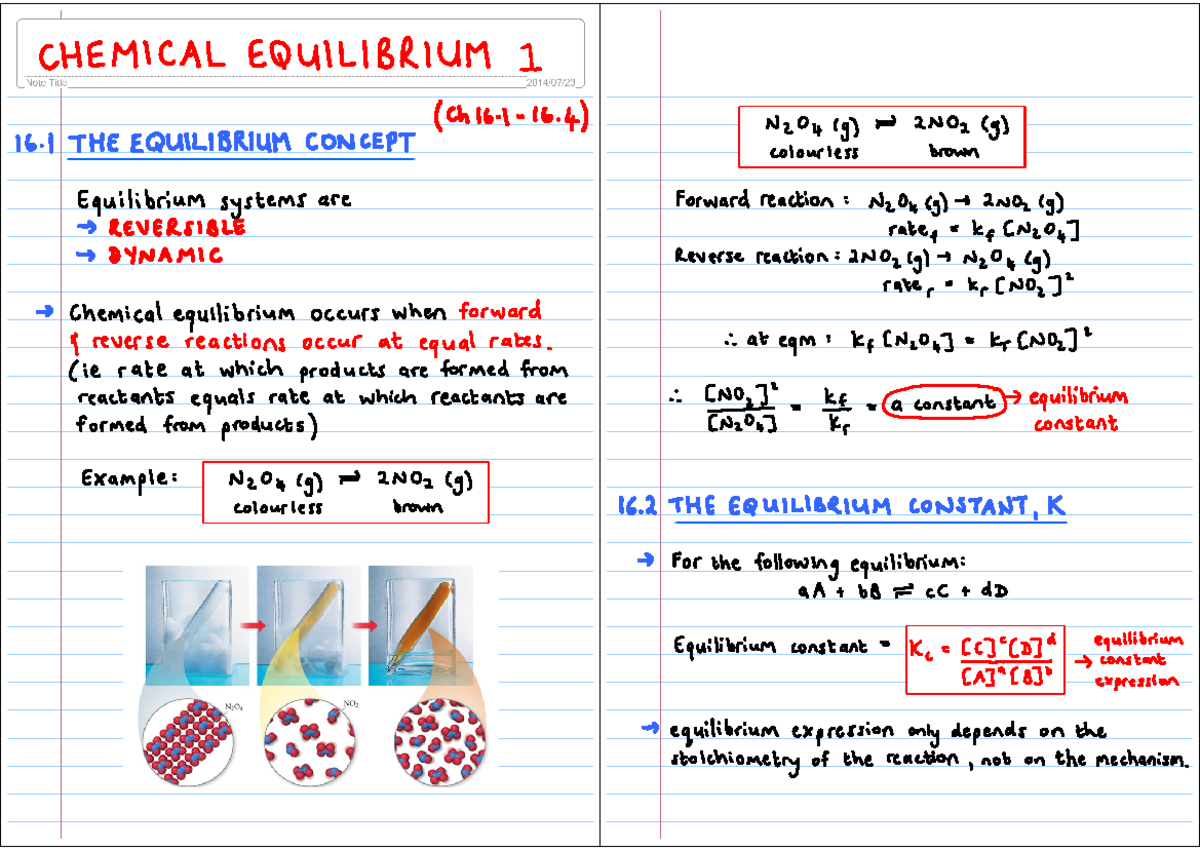 CHEMICAL EQUILIBRIUM 1
Note Title 2014/07/23
(Ch 16.1 - 16.4)
16.1 THE EQUILIBRIUM CONCEPT
Equilibrium systems are
→ REVERSIBLE
→ DYNAMIC
→ Chemical equilibrium occurs when forward
& reverse reactions occur at equal rates.
(ie rate at which products are formed from
reactants equals rate at which reactants are
formed from products)
Example: N₂O₄ (g) ⇌ 2NO₂ (g)
colourless brown
N₂O₄
NO₂
N₂O₄ (g) ⇌ 2NO₂ (g)
colourless brown
Forward reaction : N₂O₄ (g) → 2NO₂ (g)
rate_f = k_f [N₂O₄]
Reverse reaction : 2NO₂ (g) → N₂O₄ (g)
rate_r = k_r [NO₂]²
∴ at eqm : k_f [N₂O₄] = k_r [NO₂]²
∴ [NO₂]² / [N₂O₄] = k_f / k_r = a constant → equilibrium
constant
16.2 THE EQUILIBRIUM CONSTANT, K
→ For the following equilibrium:
aA + bB ⇌ cC + dD
Equilibrium constant = K_c = [C]^c [D]^d / [A]^a [B]^b → equilibrium
constant
expression
→ equilibrium expression only depends on the
stoichiometry of the reaction, not on the mechanism.